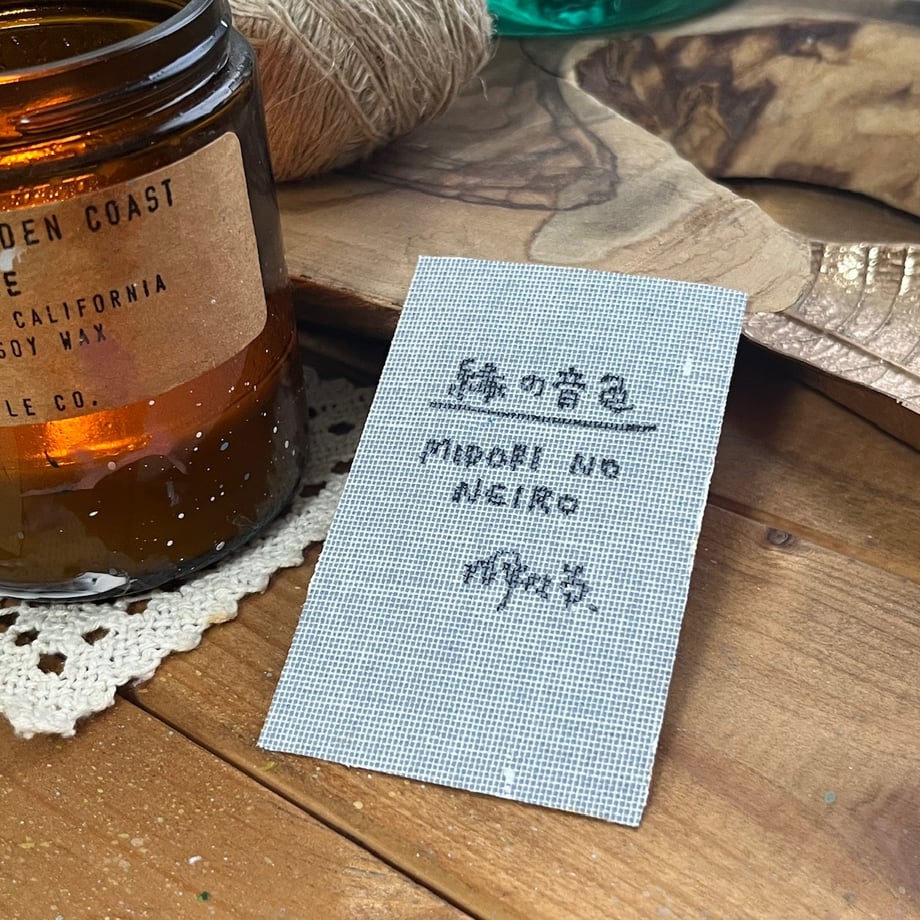 DEN COAST
E
CALIFORNIA
SOY WAX
LE CO.
緑の音色
MIDORI NO
NEIRO